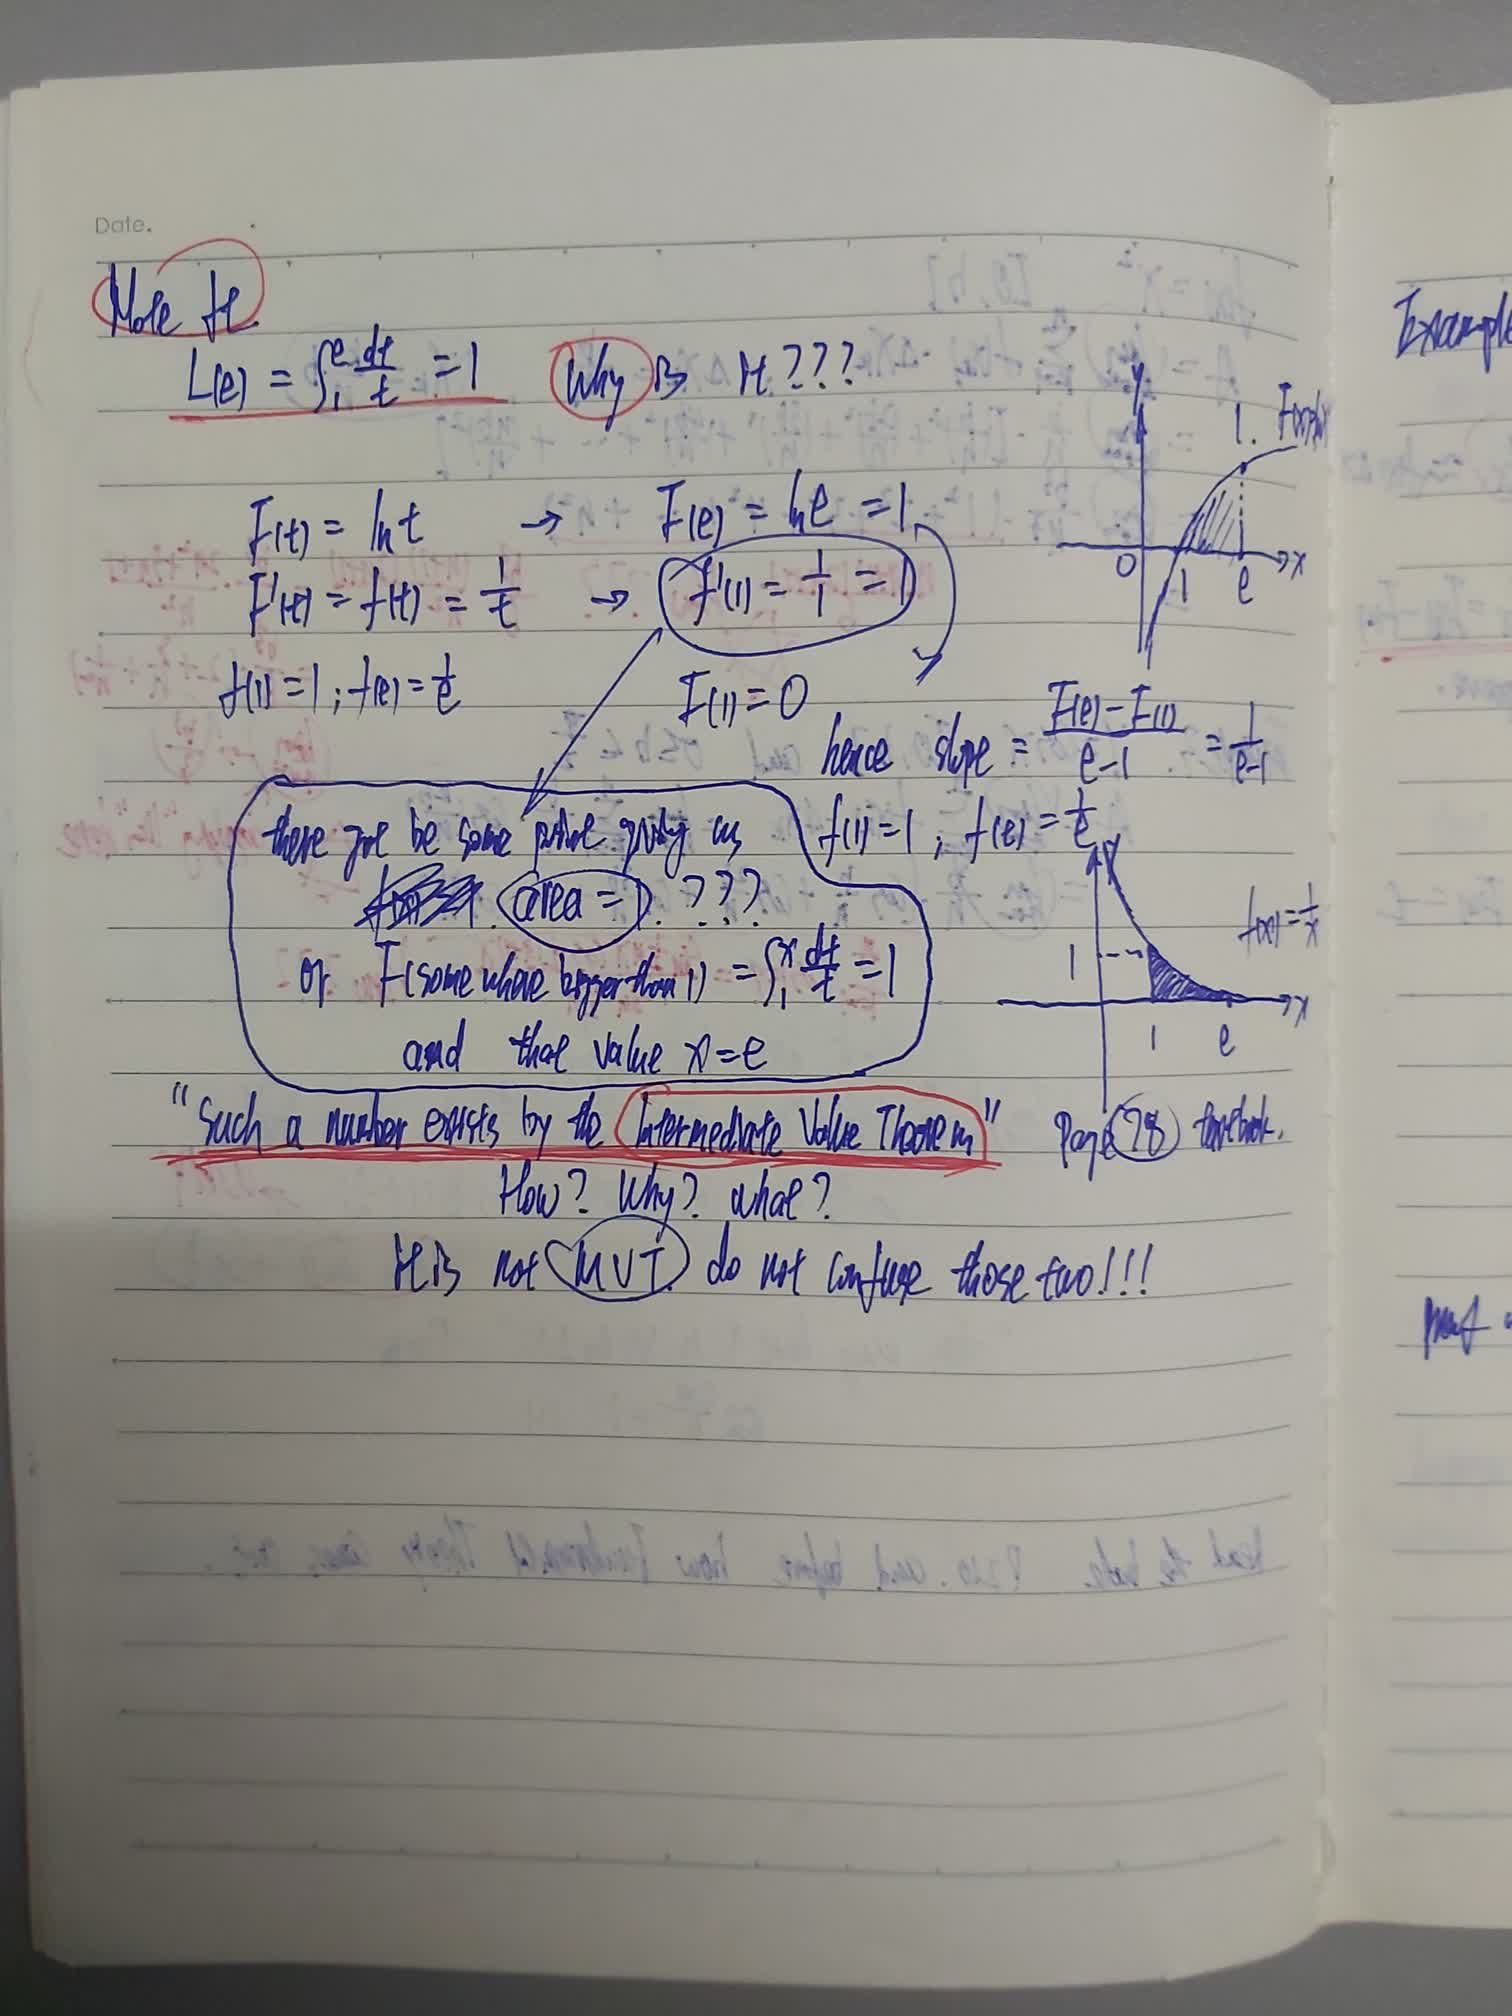 Date.
Note it.
L(e) = ∫₁ᵉ dt/t = 1 Why is it???
y
1. F(x)
F(t) = ln t → F(e) = ln e = 1
F'(t) = f(t) = 1/t → f'(1) = 1/1 = 1
0 1 e x
f(1) = 1 ; f(e) = 1/e F(1) = 0
hence slope = F(e) - F(1) / e-1 = 1/e-1
there be some point giving us
f(1) = 1 , f(e) = 1/e
area = 1. ???
f(x) = 1/x
or F(some where bigger than 1) = ∫₁ˣ dt/t = 1
1
x
and that value x = e
1 e
"Such a number exists by the Intermediate Value Theorem"
Page 78 textbook.
How? Why? what?
It is not MVT. do not confuse those two!!!
Example